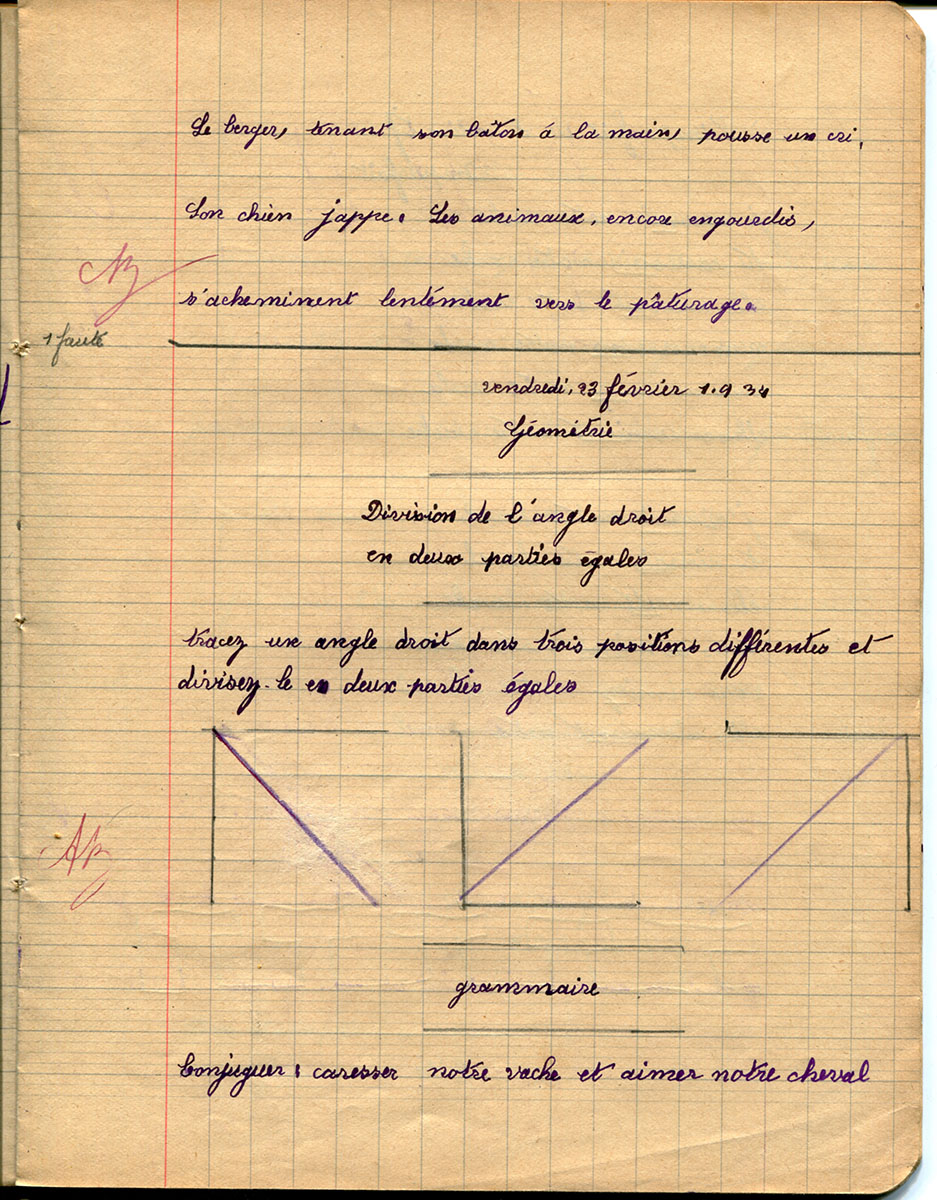 Le berger, tenant son bâton à la main, pousse un cri.
Son chien jappe. Les animaux, encore engourdis,
s'acheminent lentément vers le pâturage.
1 faute
vendredi, 23 février 1934
Géométrie
Division de l'angle droit
en deux parties égales
tracez un angle droit dans trois positions différentes et
divisez-le en deux parties égales
grammaire
Conjuguer : caresser notre vache et aimer notre cheval